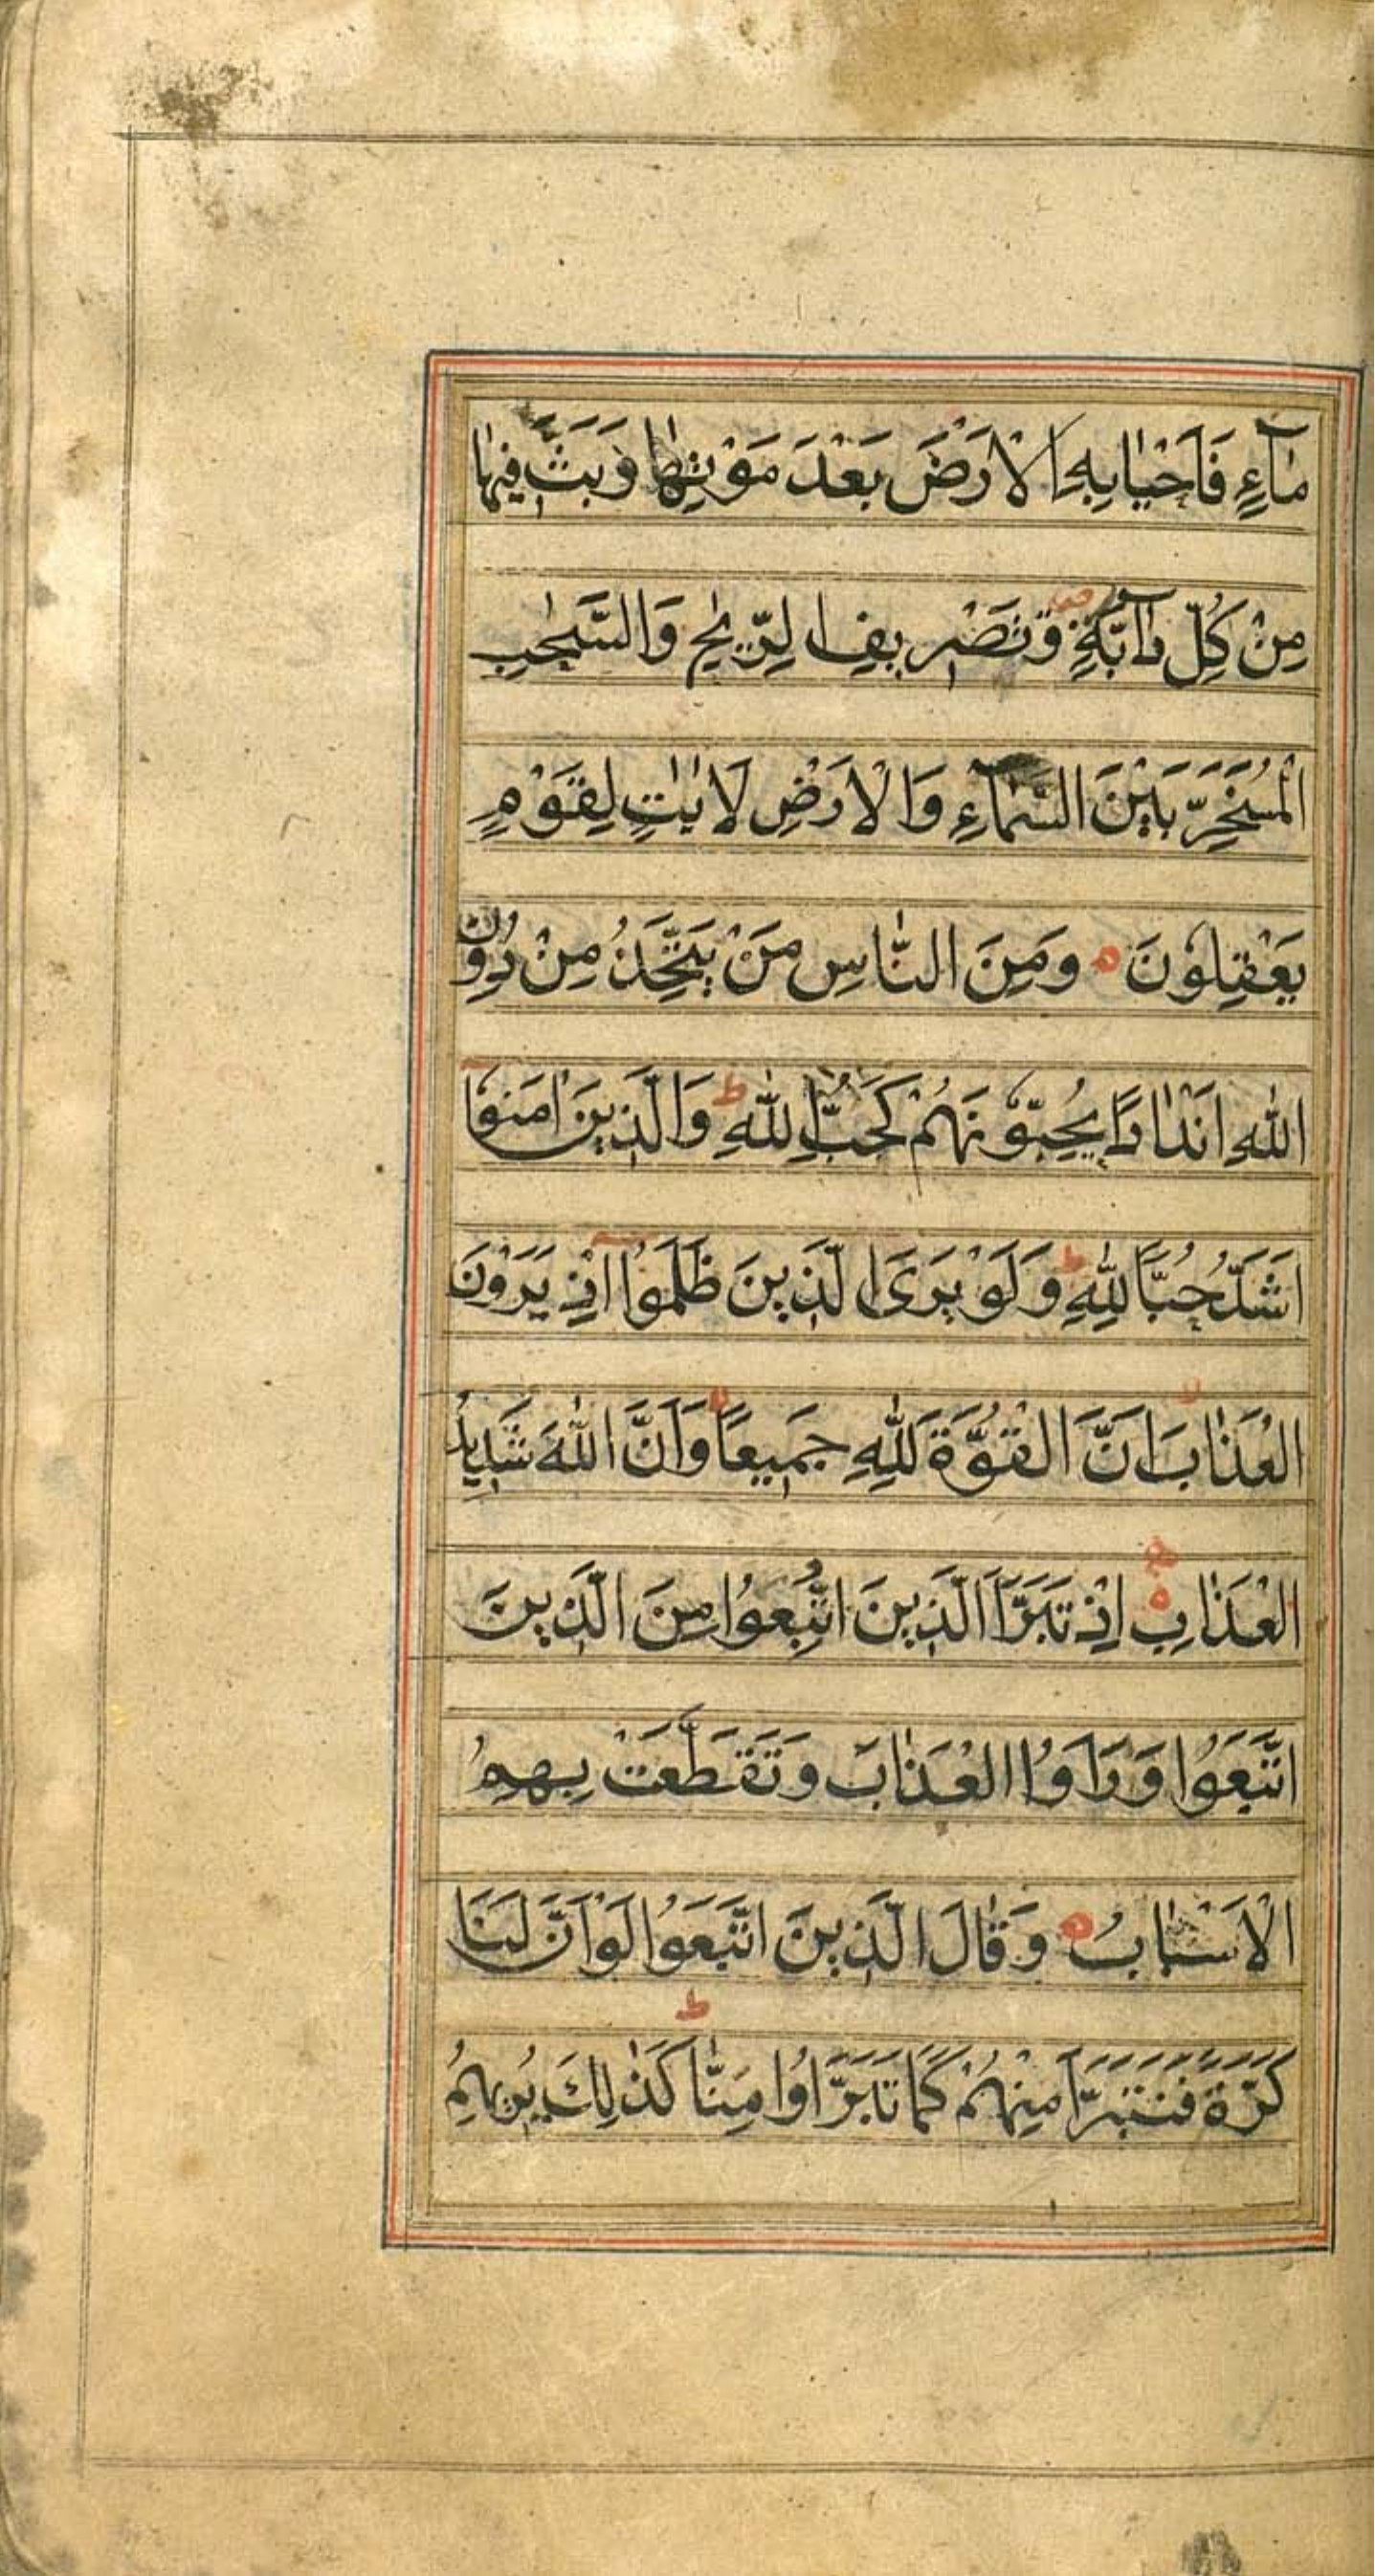 مَآءٍ فَاَحْيَا بِهِ الْاَرْضَ بَعْدَ مَوْتِهَا وَبَثَّ فِيْهَا
مِنْ كُلِّ دَآبَّةٍ ۪ وَّتَصْرِيفِ الرِّيٰحِ وَالسَّحٰبِ
الْمُسَخَّرِ بَيْنَ السَّمَآءِ وَالْاَرْضِ لَاٰيٰتٍ لِقَوْمٍ
يَعْقِلُوْنَ ٥ وَمِنَ النَّاسِ مَنْ يَتَّخِذُ مِنْ دُوْنِ
اللّٰهِ اَنْدَادًا يُحِبُّوْنَهُمْ كَحُبِّ اللّٰهِ ط وَالَّذِينَ اٰمَنُوْا
اَشَدُّ حُبًّا لِلّٰهِ ط وَلَوْ يَرَى الَّذِينَ ظَلَمُوْا اِذْ يَرَوْنَ
الْعَذَابَ لا اَنَّ الْقُوَّةَ لِلّٰهِ جَمِيعًا لا وَاَنَّ اللّٰهَ شَدِيدُ
الْعَذَابِ ٥ اِذْ تَبَرَّاَ الَّذِينَ اتُّبِعُوْا مِنَ الَّذِينَ
اتَّبَعُوْا وَرَاَوُا الْعَذَابَ وَتَقَطَّعَتْ بِهِمُ
الْاَسْبَابُ ٥ وَقَالَ الَّذِينَ اتَّبَعُوْا لَوْ اَنَّ لَنَا
كَرَّةً فَنَتَبَرَّاَ مِنْهُمْ كَمَا تَبَرَّاُوْا مِنَّا ط كَذٰلِكَ يُرِيهِمُ